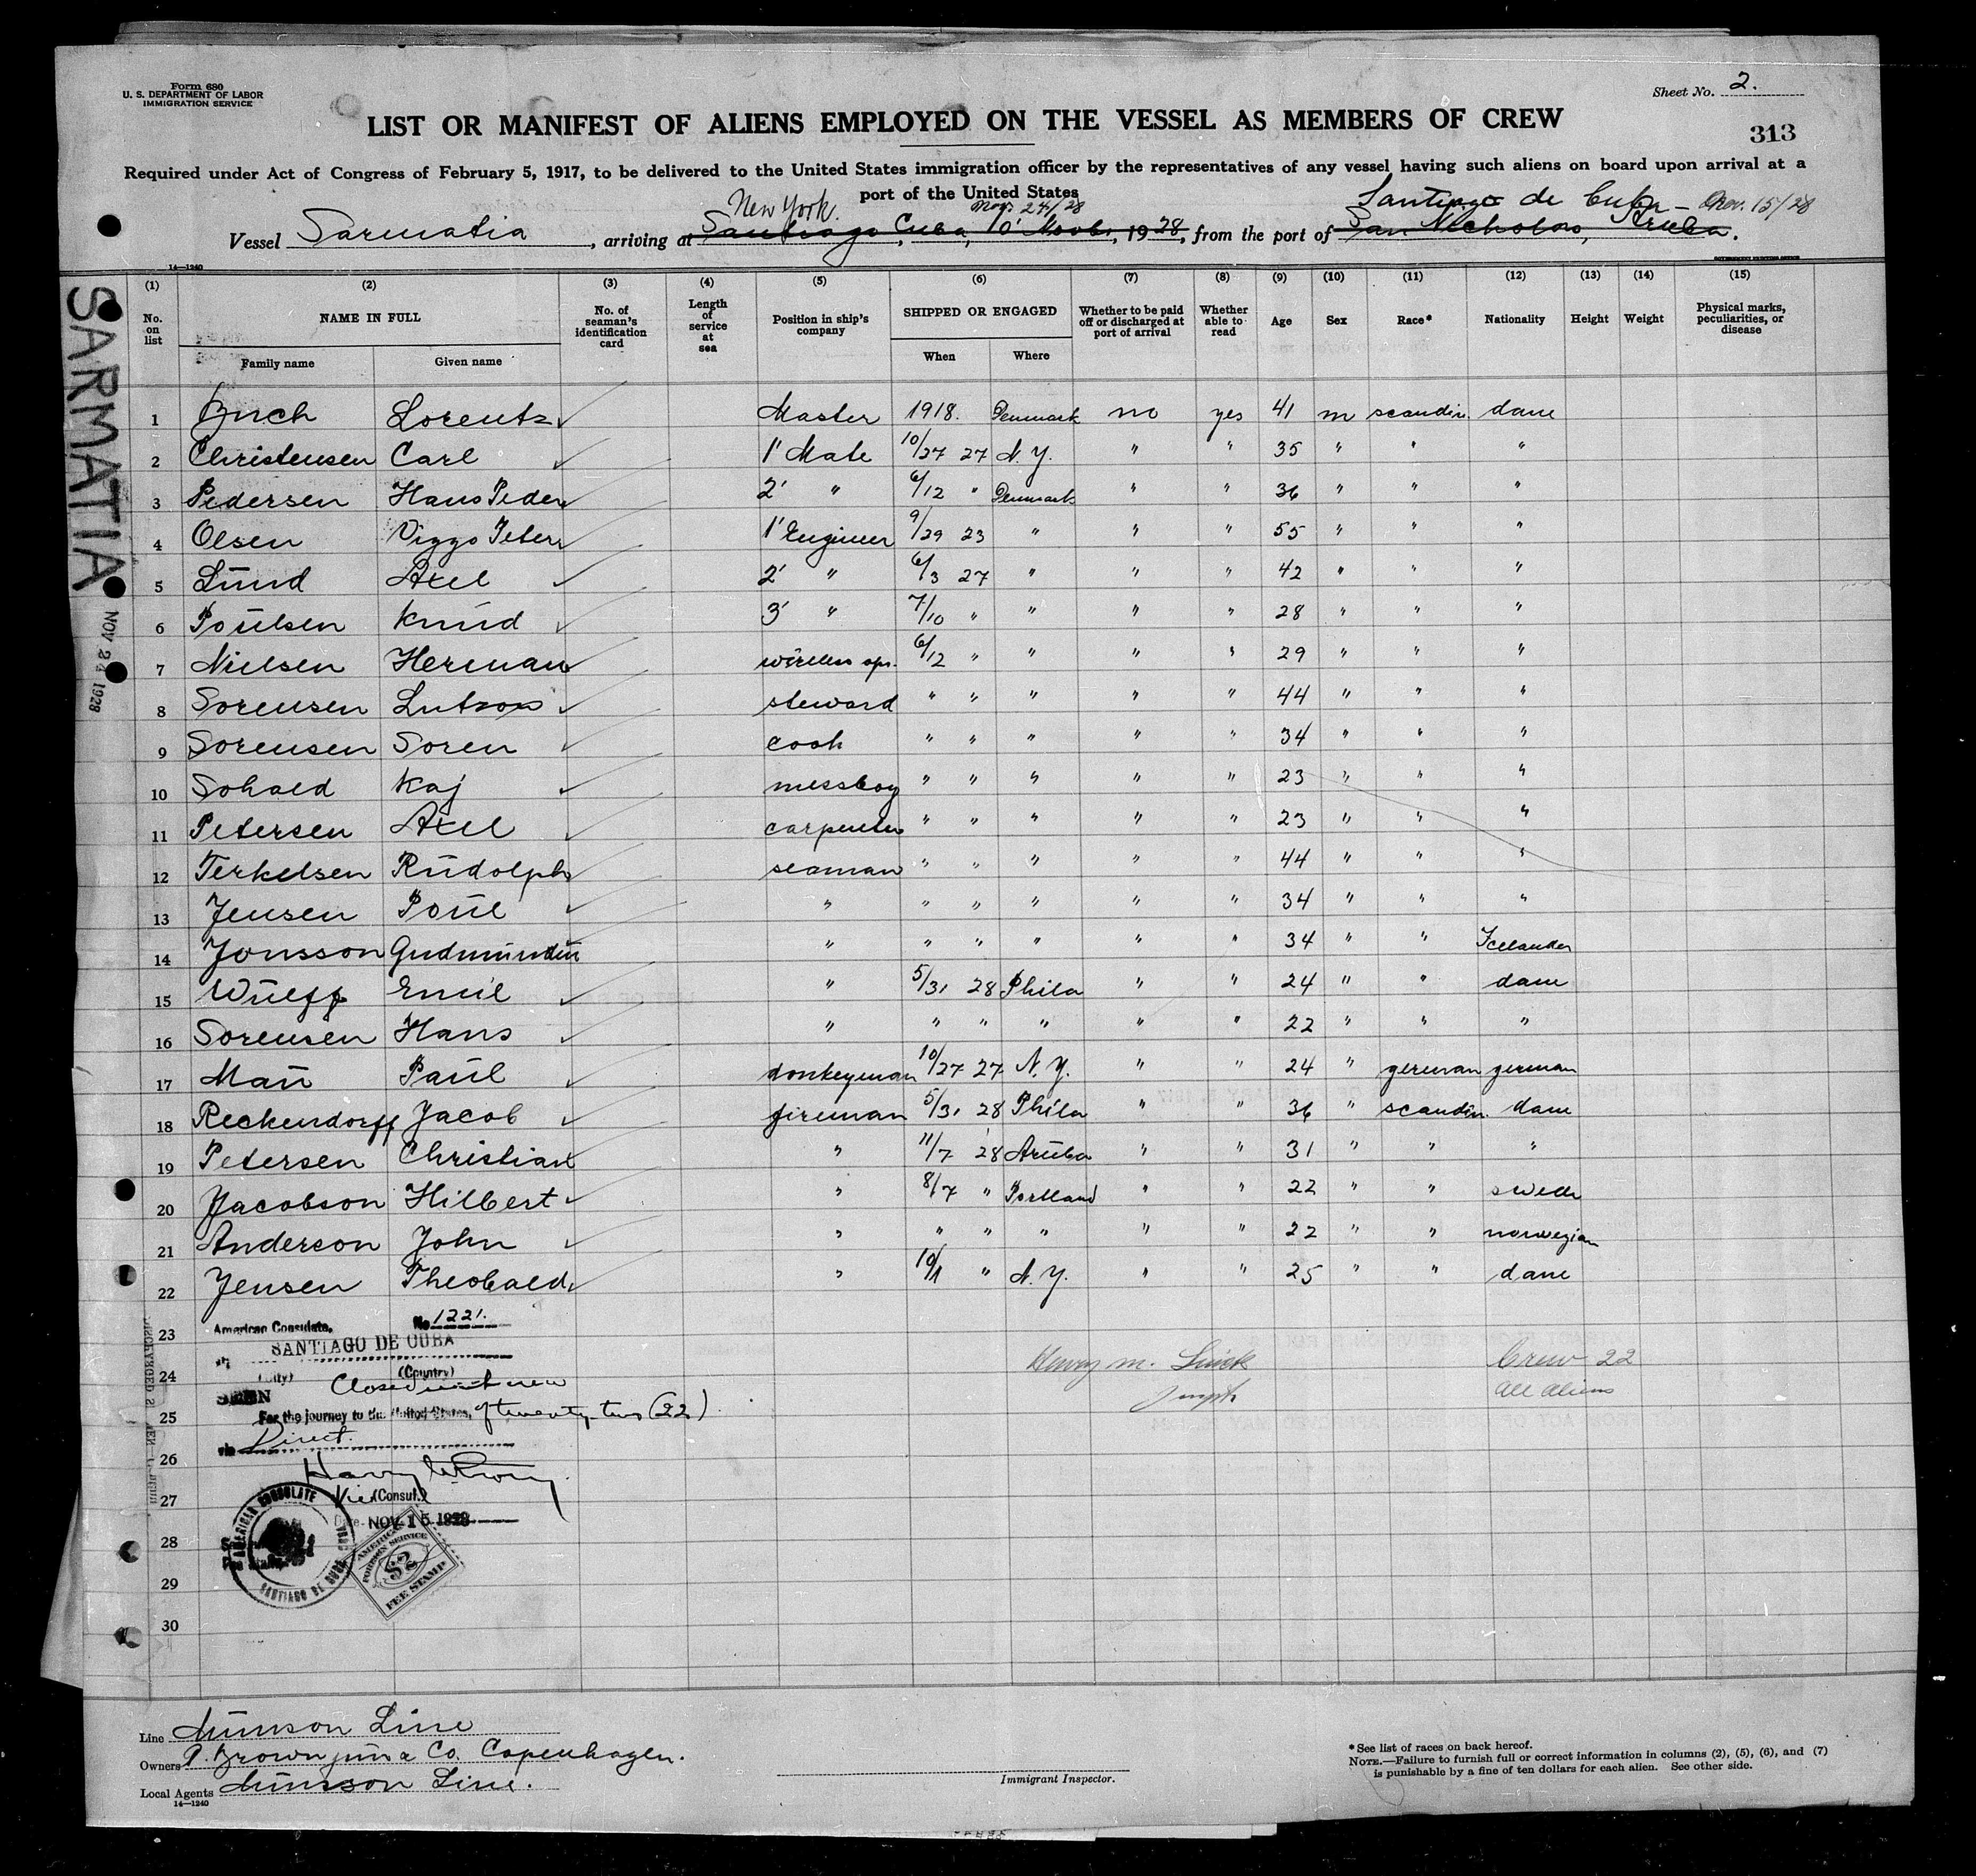 Form 680
U. S. DEPARTMENT OF LABOR
IMMIGRATION SERVICE
Sheet No. 2.
LIST OR MANIFEST OF ALIENS EMPLOYED ON THE VESSEL AS MEMBERS OF CREW
313
Required under Act of Congress of February 5, 1917, to be delivered to the United States immigration officer by the representatives of any vessel having such aliens on board upon arrival at a
port of the United States
New York. Nov. 24/28 Santiago de Cuba - Nov. 15/28
Vessel Sarmatia, arriving at Santiago Cuba, 10' Novb., 1928, from the port of San Nicholas, Aruba.
14—1240
GOVERNMENT PRINTING OFFICE
SARMATIA
NOV 24 1928
(1) (2) (3) (4) (5) (6) (7) (8) (9) (10) (11) (12) (13) (14) (15)
No. on list NAME IN FULL No. of seaman's identification card Length of service at sea Position in ship's company SHIPPED OR ENGAGED Whether to be paid off or discharged at port of arrival Whether able to read Age Sex Race* Nationality Height Weight Physical marks, peculiarities, or disease
Family name Given name When Where
1 Buch Lorentz ✓ Master 1918. Denmark no yes 41 m scandin. dane
2 Christensen Carl ✓ 1' Mate 10/27 27 N.Y. " " 35 " " "
3 Pedersen Hans Peder ✓ 2' " 6/12 " Denmark " " 36 " " "
4 Olsen Viggo Peter ✓ 1' Engineer 9/29 23 " " " 55 " " "
5 Lund Axel ✓ 2' " 6/3 27 " " " 42 " " "
6 Poulsen Knud ✓ 3' " 7/10 " " " " 28 " " "
7 Nielsen Herman ✓ wireless opr. 6/12 " " " " 29 " " "
8 Sorensen ✓ steward " " " " " 44 " " "
9 Sorensen Soren ✓ cook " " " " " 34 " " "
10 Sohald Kaj ✓ messboy " " " " " 23 " " "
11 Petersen Axel ✓ carpenter " " " " " 23 " " "
12 Terkelsen Rudolph ✓ seaman " " " " " 44 " " "
13 Jensen Poul ✓ " " " " " " 34 " " "
14 Jonsson Gudmundur " " " " " " 34 " " Icelander
15 Wulff Emil ✓ " 5/31 28 Phila " " 24 " " dane
16 Sorensen Hans ✓ " " " " " " 22 " " "
17 Mau Paul ✓ donkeyman 10/27 27 N.Y. " " 24 " german german
18 Reckendorff Jacob ✓ fireman 5/31 28 Phila " " 36 " scandin. dane
19 Petersen Christian ✓ " 11/7 28 Aruba " " 31 " " "
20 Jacobson Hilbert ✓ " 8/7 " Portland " " 22 " " swede
21 Anderson John ✓ " " " " " " 22 " " norwegian
22 Jensen Theobald ✓ " 10/1 " N.Y. " " 25 " " dane
American Consulate, No 1221.
23
SANTIAGO DE CUBA
24 (City) (Country) Henry M. Crew 22
Closed with crew All aliens
SEEN
25 For the journey to the United States, of twenty-two (22)
via Direct.
26
Harry
27 Vice (Consul.)
Date NOV 15 1928
28 AMERICAN CONSULATE SANTIAGO DE CUBA
AMERICAN FOREIGN SERVICE $2 FEE STAMP
29
30
Line Munson Line
Owners A. Brown jun & Co. Copenhagen.
Local Agents Munson Line.
14—1240
Immigrant Inspector.
* See list of races on back hereof.
NOTE.—Failure to furnish full or correct information in columns (2), (5), (6), and (7)
is punishable by a fine of ten dollars for each alien. See other side.